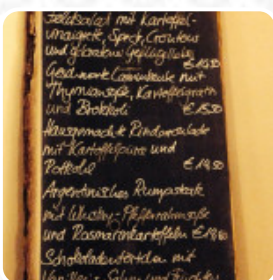 Feldsalat mit Kartoffel-
vinaigrette, Speck, Croutons
und gebratener Geflügelleber
€
Geschmorte Lammkeule mit
Thymiansoße, Kartoffelgratin
und Brokkoli €
Hausgemachte Rinderroulade
mit Kartoffelpüree und
Rotkohl €
Argentinisches Rumpsteak
mit Whisky-Pfefferrahmsoße
und Rosmarinkartoffeln €
Schokoladentörtchen mit